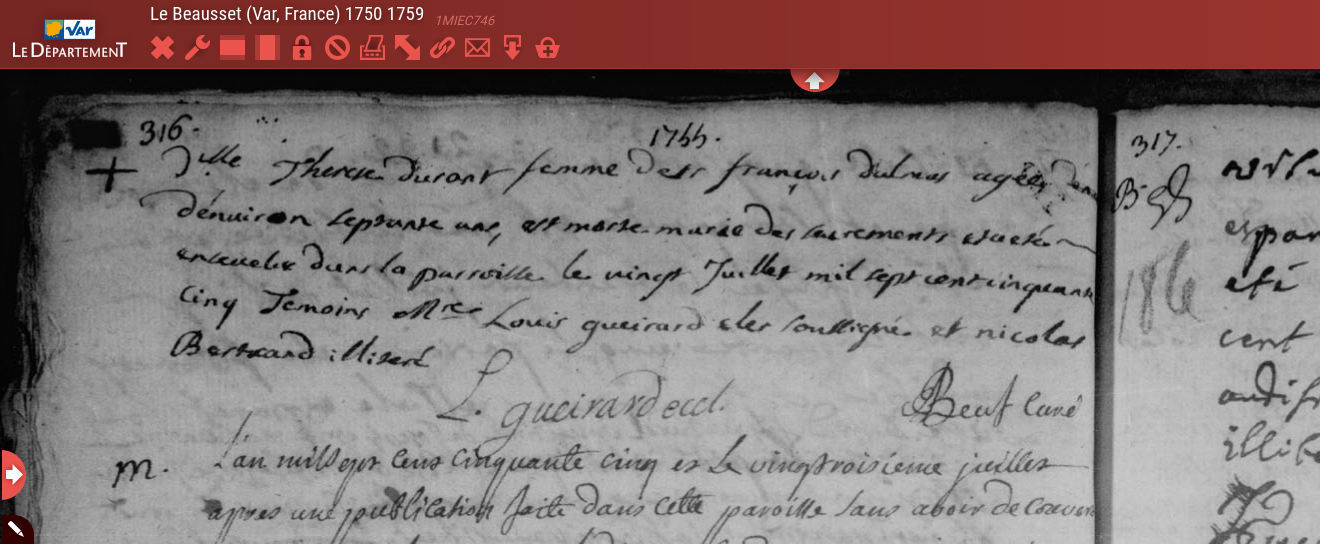 Le Beausset (Var, France) 1750 1759
1MIEC746
VAR
LE DÉPARTEMENT
316.
1755.
317.
+
Dlle Therese durant femme de sr françois dutruas agée
dénuiron septante ans, est morte munie des sacrements et a eté
enseuelie dans la parroisse le vingt Juillet mil sept cent cinquante
cinq Temoins Mre Louis gueirard clerc soussigné et nicolas
Bertrand illiteré
L. gueirard eccl.
Beuf curé
m.
L'an mil sept cens cinquante cinq et Le vingtroisieme juillet
apres une publication faite dans cette paroisse sans avoir decouvert
186
espar
eté
cent